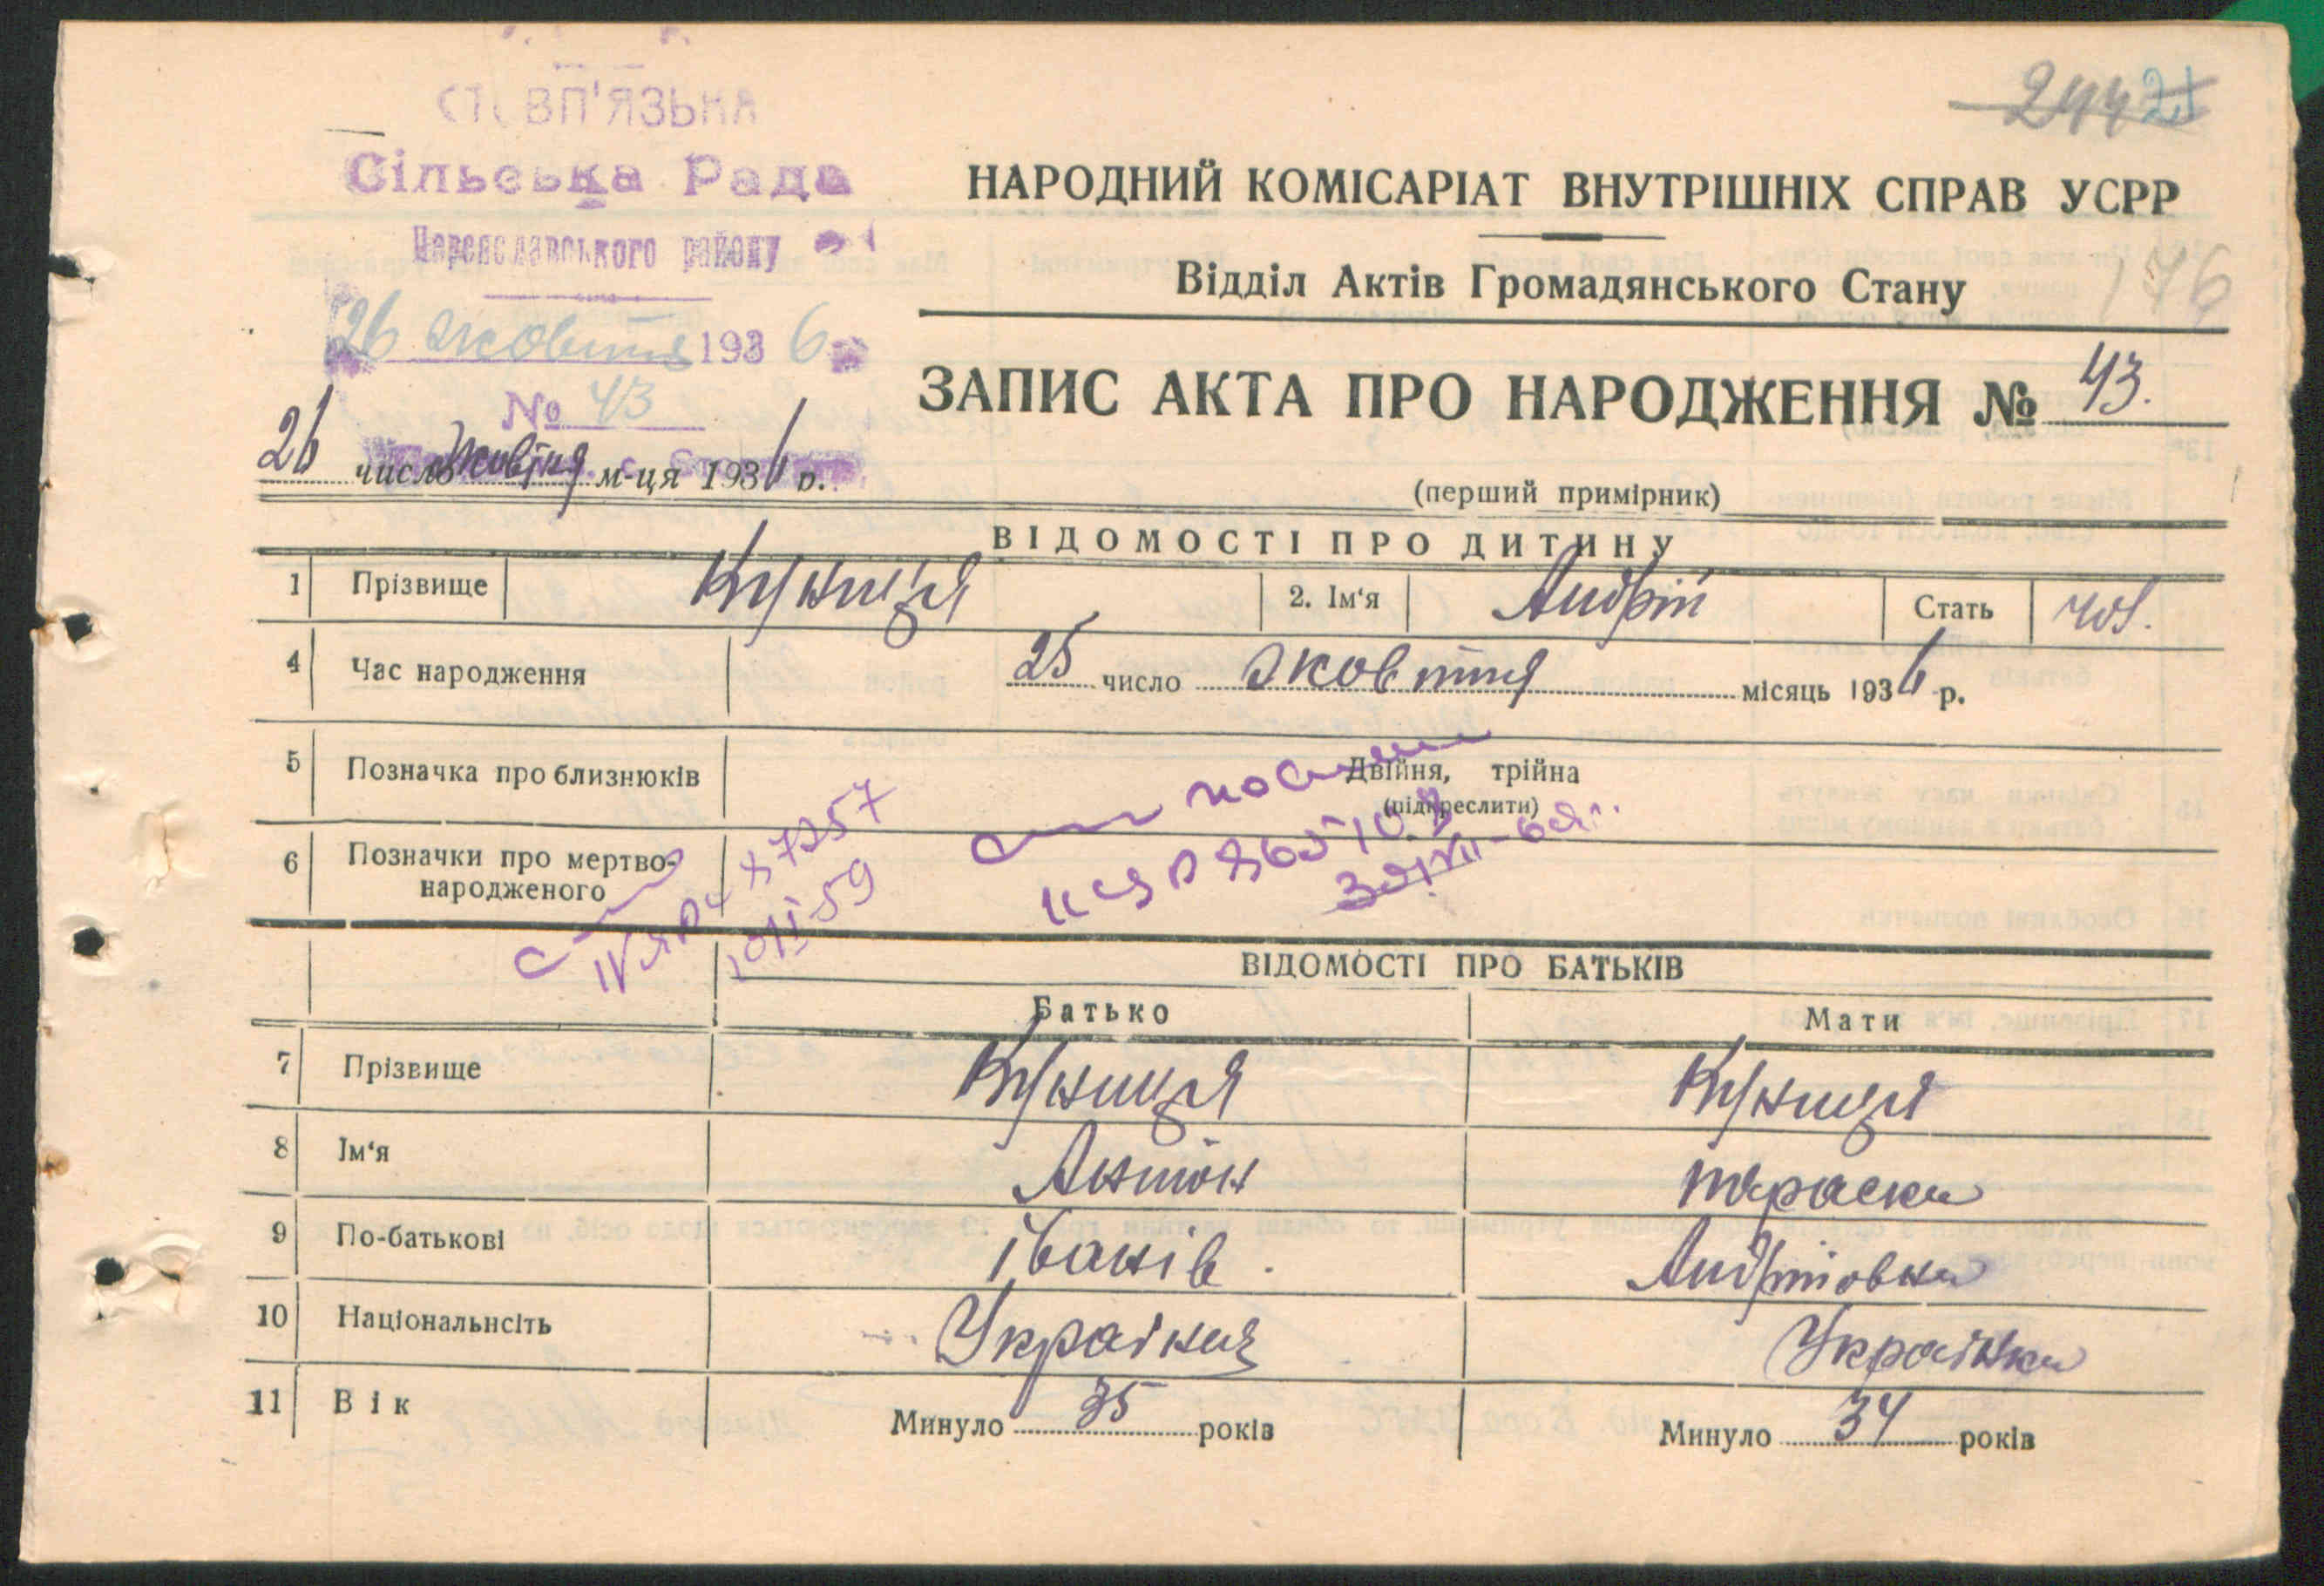 СТОВП'ЯЗЬКА
Сільська Рада
Переяславського району
26 жовтня 1936
№ 43
26 число жовтня м-ця 1936 р.
21
176
НАРОДНИЙ КОМІСАРІАТ ВНУТРІШНІХ СПРАВ УСРР
Відділ Актів Громадянського Стану
ЗАПИС АКТА ПРО НАРОДЖЕННЯ № 43.
(перший примірник)
ВІДОМОСТІ ПРО ДИТИНУ
1 Прізвище Куниця 2. Ім‘я Андрій Стать чол.
4 Час народження 25 число жовтня місяць 1936 р.
5 Позначка про близнюків Двійня, трійна
(підкреслити)
6 Позначки про мертво-
народженого
ВІДОМОСТІ ПРО БАТЬКІВ
Батько Мати
7 Прізвище Куниця Куниця
8 Ім‘я Антон Параска
9 По-батькові Іванів. Андріїовна
10 Національнсіть Українец Українка
11 Вік Минуло 35 років Минуло 34 років